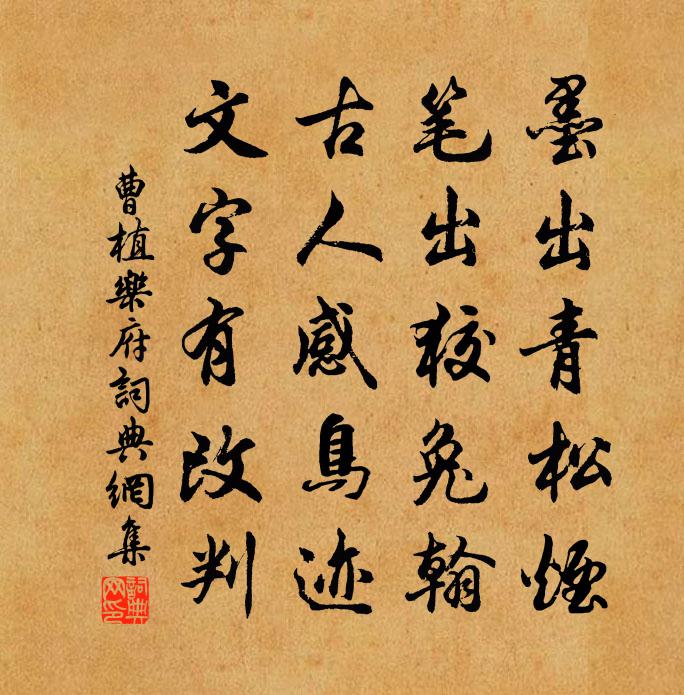 墨出青松煙
笔出狡兔翰
古人感鳥迹
文字有改判
曹植樂府詞典網集
詞典网印